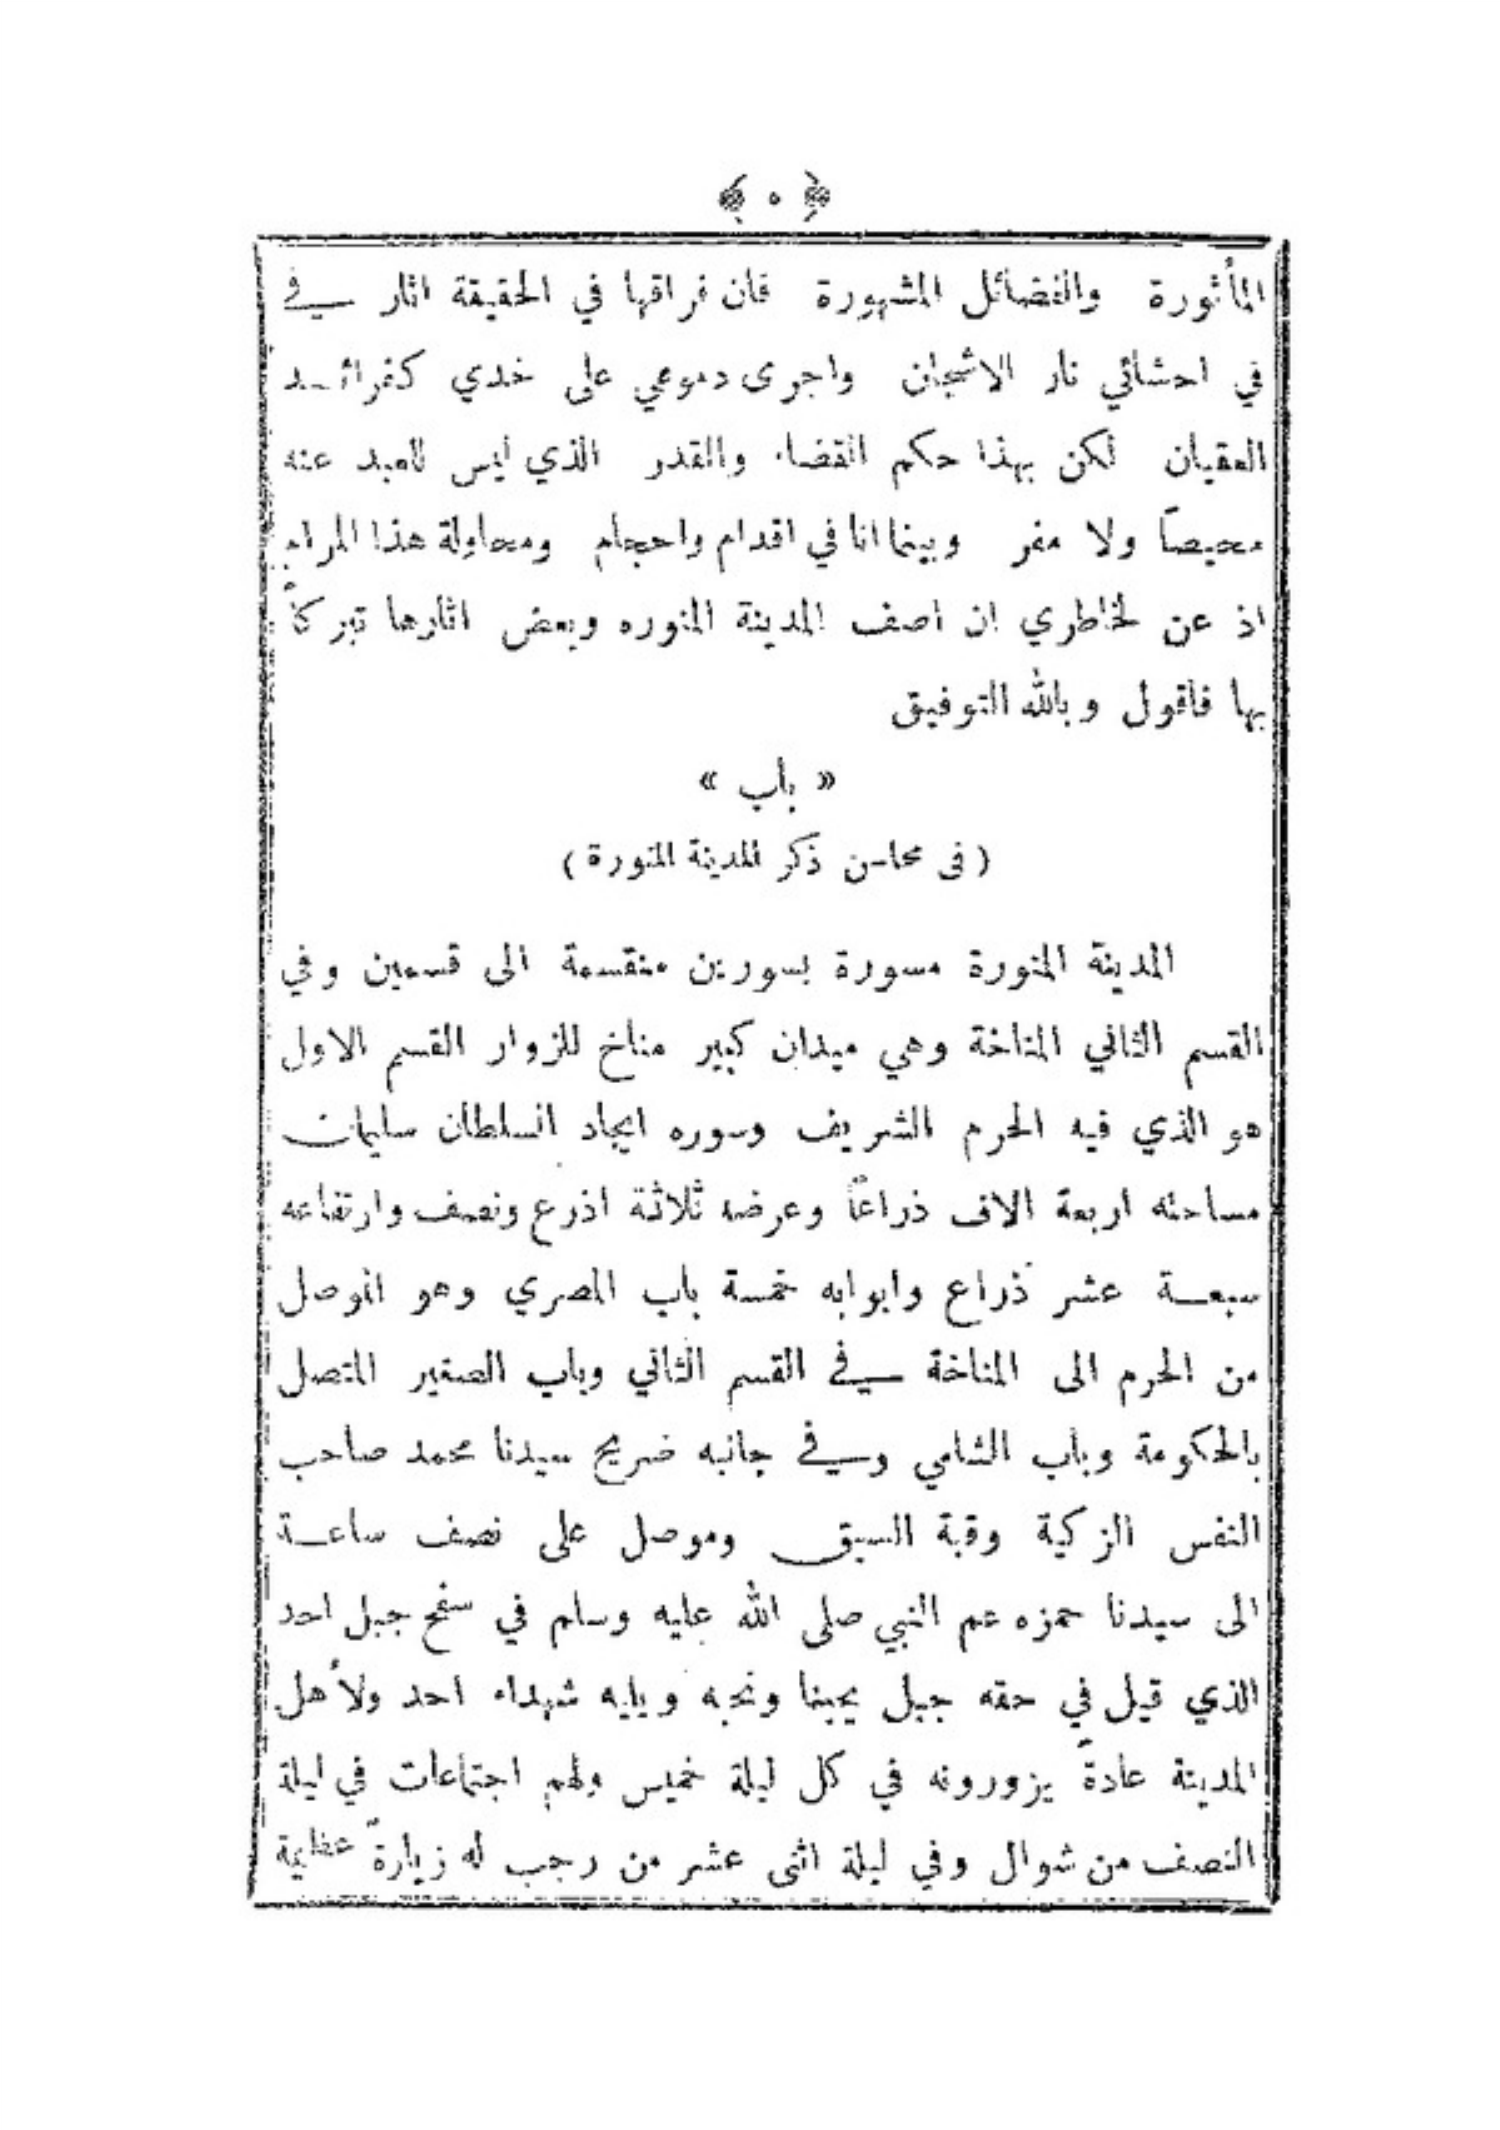 ﴿ ٥ ﴾
المأثورة والفضائل المشهورة فان فراقها في الحقيقة اثار في
في احشائي نار الاشجان واجرى دموعي على خدي كفرائد
العقيان لكن بهذا حكم القضاء والقدر الذي ليس للعبد عنه
محيصاً ولا مفر وبينما انا في اقدام واحجام ومحاولة هذا المرام
اذ عن لخاطري ان اصف المدينة المنوره وبعض اثارها تبركاً
بها فاقول وبالله التوفيق
« باب »
( في محاسن ذكر المدينة المنورة )
المدينة المنورة مسورة بسورين منقسمة الى قسمين وفي
القسم الثاني المناخة وهي ميدان كبير مناخ للزوار القسم الاول
هو الذي فيه الحرم الشريف وسوره ايجاد السلطان سليمان
مساحته اربعة الاف ذراعاً وعرضه ثلاثة اذرع ونصف وارتفاعه
سبعة عشر ذراع وابوابه خمسة باب المصري وهو الموصل
من الحرم الى المناخة في القسم الثاني وباب الصغير المتصل
بالحكومة وباب الشامي وفي جانبه ضريح سيدنا محمد صاحب
النفس الزكية وقبة السبق وموصل على نصف ساعة
الى سيدنا حمزه عم النبي صلى الله عليه وسلم في سفح جبل احد
الذي قيل في حقه جبل يحبنا ونحبه ويليه شهداء احد ولأهل
المدينة عادةً يزورونه في كل ليلة خميس ولهم اجتماعات في ليلة
النصف من شوال وفي ليلة اثنى عشر من رجب له زيارةً عظيمة